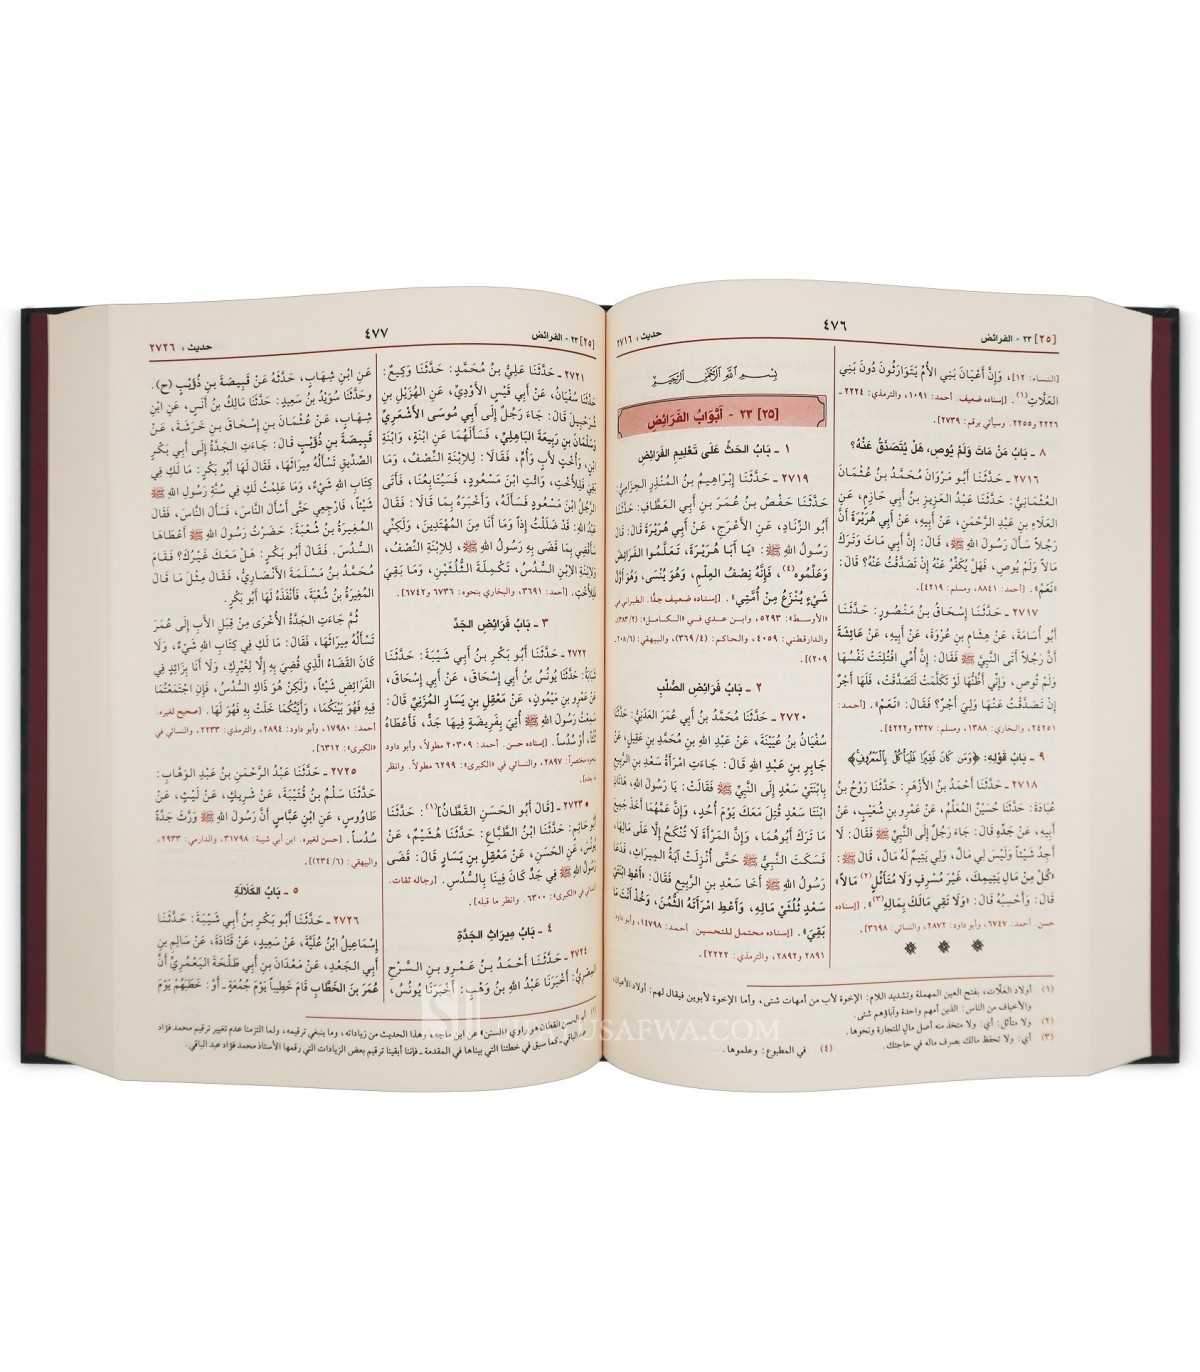 [٢٥] ٢٣ - الفرائض
٤٧٦
حديث : ٢٧١٦
[النساء: ١٢]، وَإِنَّ أَعْيَانَ بَنِي الأُمِّ يَتَوَارَثُونَ دُونَ بَنِي
العَلَّاتِ(١). [إسناده ضعيف. أحمد: ١٠٩١، والترمذي: ٢٢٢٤ -
٢٢٢٦ و٢٢٥٥. وسيأتي برقم: ٢٧٣٩].
٨ ـ بَابُ مَنْ مَاتَ وَلَمْ يُوصِ، هَلْ يُتَصَدَّقُ عَنْهُ؟
٢٧١٦ ـ حَدَّثَنَا أَبُو مَرْوَانَ مُحَمَّدُ بنُ عُثْمَانَ
العُثْمَانِيُّ: حَدَّثَنَا عَبْدُ العَزِيزِ بنُ أَبِي حَازِمٍ، عَنِ
العَلَاءِ بنِ عَبْدِ الرَّحْمَنِ، عَنْ أَبِيهِ، عَنْ أَبِي هُرَيْرَةَ أَنَّ
رَجُلاً سَأَلَ رَسُولَ اللهِ ﷺ، قَالَ: إِنَّ أَبِي مَاتَ وَتَرَكَ
مَالاً وَلَمْ يُوصِ، فَهَلْ يُكَفِّرُ عَنْهُ إِنْ تَصَدَّقْتُ عَنْهُ؟ قَالَ:
«نَعَمْ». [أحمد: ٨٨٤١، ومسلم: ٤٢١٩].
٢٧١٧ ـ حَدَّثَنَا إِسْحَاقُ بنُ مَنْصُورٍ: حَدَّثَنَا
أَبُو أُسَامَةَ، عَنْ هِشَامِ بنِ عُرْوَةَ، عَنْ أَبِيهِ، عَنْ عَائِشَةَ
أَنَّ رَجُلاً أَتَى النَّبِيَّ ﷺ فَقَالَ: إِنَّ أُمِّي افْتُلِتَتْ نَفْسُهَا
وَلَمْ تُوصِ، وَإِنِّي أَظُنُّهَا لَوْ تَكَلَّمَتْ لَتَصَدَّقَتْ، فَلَهَا أَجْرٌ
إِنْ تَصَدَّقْتُ عَنْهَا وَلِيَ أَجْرٌ؟ فَقَالَ: «نَعَمْ». [أحمد:
٢٤٢٥١، والبخاري: ١٣٨٨، ومسلم: ٢٣٢٧ و٤٢٢٢].
٩ ـ بَابُ قَوْلِهِ: ﴿وَمَن كَانَ فَقِيرًا فَلْيَأْكُلْ بِالْمَعْرُوفِ﴾
٢٧١٨ ـ حَدَّثَنَا أَحْمَدُ بنُ الأَزْهَرِ: حَدَّثَنَا رَوْحُ بنُ
عُبَادَةَ: حَدَّثَنَا حُسَيْنٌ المُعَلِّمُ، عَنْ عَمْرِو بنِ شُعَيْبٍ، عَنْ
أَبِيهِ، عَنْ جَدِّهِ قَالَ: جَاءَ رَجُلٌ إِلَى النَّبِيِّ ﷺ فَقَالَ: لَا
أَجِدُ شَيْئاً وَلَيْسَ لِي مَالٌ، وَلِي يَتِيمٌ لَهُ مَالٌ، قَالَ ﷺ:
«كُلْ مِنْ مَالِ يَتِيمِكَ، غَيْرَ مُسْرِفٍ وَلَا مُتَأَثِّلٍ(٢) مَالاً»
قَالَ: وَأَحْسِبُهُ قَالَ: «وَلَا تَقِي مَالَكَ بِمَالِهِ(٣)». [إسناده
حسن. أحمد: ٦٧٤٧، وأبو داود: ٢٨٧٢، والنسائي: ٣٦٩٨].
بِسْمِ اللَّهِ الرَّحْمَنِ الرَّحِيمِ
[٢٥] ٢٣ - أَبْوَابُ الفَرَائِضِ
١ ـ بَابُ الحَثِّ عَلَى تَعْلِيمِ الفَرَائِضِ
٢٧١٩ ـ حَدَّثَنَا إِبْرَاهِيمُ بنُ المُنْذِرِ الحِزَامِيُّ:
حَدَّثَنَا حَفْصُ بنُ عُمَرَ بنِ أَبِي العَطَّافِ: حَدَّثَنَا
أَبُو الزِّنَادِ، عَنِ الأَعْرَجِ، عَنْ أَبِي هُرَيْرَةَ قَالَ: قَالَ
رَسُولُ اللهِ ﷺ: «يَا أَبَا هُرَيْرَةَ، تَعَلَّمُوا الفَرَائِضَ
وَعَلِّمُوه(٤)، فَإِنَّهُ نِصْفُ العِلْمِ، وَهُوَ يُنْسَى، وَهُوَ أَوَّلُ
شَيْءٍ يُنْزَعُ مِنْ أُمَّتِي». [إسناده ضعيف جدًّا. الطبراني في
«الأوسط»: ٥٢٩٣، وابن عدي في «الكامل»: (٣٨٣/٢)،
والدارقطني: ٤٠٥٩، والحاكم: (٣٦٩/٤)، والبيهقي: (٢٠٨/٦ـ
٢٠٩)].
٢ ـ بَابُ فَرَائِضِ الصُّلْبِ
٢٧٢٠ ـ حَدَّثَنَا مُحَمَّدُ بنُ أَبِي عُمَرَ العَدَنِيُّ: حَدَّثَنَا
سُفْيَانُ بنُ عُيَيْنَةَ، عَنْ عَبْدِ اللهِ بنِ مُحَمَّدِ بنِ عَقِيلٍ، عَنْ
جَابِرِ بنِ عَبْدِ اللهِ قَالَ: جَاءَتِ امْرَأَةُ سَعْدِ بنِ الرَّبِيعِ
بِابْنَتَيْ سَعْدٍ إِلَى النَّبِيِّ ﷺ فَقَالَتْ: يَا رَسُولَ اللهِ، هَاتَانِ
ابْنَتَا سَعْدٍ قُتِلَ مَعَكَ يَوْمَ أُحُدٍ، وَإِنَّ عَمَّهُمَا أَخَذَ جَمِيعَ
مَا تَرَكَ أَبُوهُمَا، وَإِنَّ المَرْأَةَ لَا تُنْكَحُ إِلَّا عَلَى مَالِهَا،
فَسَكَتَ النَّبِيُّ ﷺ حَتَّى أُنْزِلَتْ آيَةُ المِيرَاثِ، فَدَعَا
رَسُولُ اللهِ ﷺ أَخَا سَعْدِ بنِ الرَّبِيعِ فَقَالَ: «أَعْطِ ابْنَتَيْ
سَعْدٍ ثُلُثَيْ مَالِهِ، وَأَعْطِ امْرَأَتَهُ الثُّمُنَ، وَخُذْ أَنْتَ مَا
بَقِيَ». [إسناده محتمل للتحسين. أحمد: ١٤٧٩٨، وأبو داود:
٢٨٩١ و٢٨٩٢، والترمذي: ٢٢٢٢].
(١) أولاد العَلَّات، بفتح العين المهملة وتشديد اللام: الإخوة لأب من أمهات شتى، وأما الإخوة لأبوين فيقال لهم: أولاد الأعيان،
والأخياف من الناس: الذين أمهم واحدة وآباؤهم شتى.
(٢) ولا متأثل: أي: ولا متخذ منه أصل مالٍ للتجارة ونحوها.
(٣) أي: ولا تحفظ مالك بصرف ماله في حاجتك.
(٤) في المطبوع: وعلموها.
[٢٥] ٢٣ - الفرائض
٤٧٧
حديث : ٢٧٢٦
٢٧٢١ ـ حَدَّثَنَا عَلِيُّ بنُ مُحَمَّدٍ: حَدَّثَنَا وَكِيعٌ:
حَدَّثَنَا سُفْيَانُ، عَنْ أَبِي قَيْسٍ الأَوْدِيِّ، عَنِ الهُزَيْلِ بنِ
شُرَحْبِيلَ قَالَ: جَاءَ رَجُلٌ إِلَى أَبِي مُوسَى الأَشْعَرِيِّ
وَسَلْمَانَ بنِ رَبِيعَةَ البَاهِلِيِّ، فَسَأَلَهُمَا عَنِ ابْنَةٍ، وَابْنَةِ
ابْنٍ، وَأُخْتٍ لِأَبٍ وَأُمٍّ، فَقَالَا: لِلابْنَةِ النِّصْفُ، وَمَا
بَقِيَ فَلِلأُخْتِ، وَائْتِ ابْنَ مَسْعُودٍ، فَسَيُتَابِعُنَا، فَأَتَى
الرَّجُلُ ابْنَ مَسْعُودٍ فَسَأَلَهُ، وَأَخْبَرَهُ بِمَا قَالَا: فَقَالَ
عَبْدُ اللهِ: قَدْ ضَلَلْتُ إِذاً وَمَا أَنَا مِنَ المُهْتَدِينَ، وَلَكِنِّي
سَأَقْضِي بِمَا قَضَى بِهِ رَسُولُ اللهِ ﷺ، لِلابْنَةِ النِّصْفُ،
وَلِابْنَةِ الابْنِ السُّدُسُ، تَكْمِلَةَ الثُّلُثَيْنِ، وَمَا بَقِيَ
فَلِلأُخْتِ. [أحمد: ٣٦٩١، والبخاري بنحوه: ٦٧٣٦ و٦٧٤٢].
٣ ـ بَابُ فَرَائِضِ الجَدِّ
٢٧٢٢ ـ حَدَّثَنَا أَبُو بَكْرِ بنُ أَبِي شَيْبَةَ: حَدَّثَنَا
شَبَابَةُ: حَدَّثَنَا يُونُسُ بنُ أَبِي إِسْحَاقَ، عَنْ أَبِي إِسْحَاقَ،
عَنْ عَمْرِو بنِ مَيْمُونٍ، عَنْ مَعْقِلِ بنِ يَسَارٍ المُزَنِيِّ قَالَ:
سَمِعْتُ رَسُولَ اللهِ ﷺ أُتِيَ بِفَرِيضَةٍ فِيهَا جَدٌّ، فَأَعْطَاهُ
ثُلُثاً، أَوْ سُدُساً. [إسناده حسن. أحمد: ٢٠٣٠٩ مطولاً، وأبو داود
بنحوه مختصراً: ٢٨٩٧، والنسائي في «الكبرى»: ٦٢٩٩ مطولاً. وانظر
ما بعده].
٢٧٢٣ ـ [قَالَ أَبُو الحَسَنِ القَطَّانُ](١): حَدَّثَنَا
أَبُو حَاتِمٍ: حَدَّثَنَا ابْنُ الطَّبَّاعِ: حَدَّثَنَا هُشَيْمٌ، عَنْ
يُونُسَ، عَنِ الحَسَنِ، عَنْ مَعْقِلِ بنِ يَسَارٍ قَالَ: قَضَى
رَسُولُ اللهِ ﷺ فِي جَدٍّ كَانَ فِينَا بِالسُّدُسِ. [رجاله ثقات.
النسائي في «الكبرى»: ٦٣٠٠. وانظر ما قبله].
٤ ـ بَابُ مِيرَاثِ الجَدَّةِ
٢٧٢٤ ـ حَدَّثَنَا أَحْمَدُ بنُ عَمْرِو بنِ السَّرْحِ
المِصْرِيُّ: أَخْبَرَنَا عَبْدُ اللهِ بنُ وَهْبٍ: أَخْبَرَنَا يُونُسُ،
عَنِ ابْنِ شِهَابٍ، حَدَّثَهُ عَنْ قَبِيصَةَ بنِ ذُؤَيْبٍ (ح).
وحَدَّثَنَا سُوَيْدُ بنُ سَعِيدٍ: حَدَّثَنَا مَالِكُ بنُ أَنَسٍ، عَنِ ابْنِ
شِهَابٍ، عَنْ عُثْمَانَ بنِ إِسْحَاقَ بنِ خَرَشَةَ، عَنْ
قَبِيصَةَ بنِ ذُؤَيْبٍ قَالَ: جَاءَتِ الجَدَّةُ إِلَى أَبِي بَكْرٍ
الصِّدِّيقِ تَسْأَلُهُ مِيرَاثَهَا، فَقَالَ لَهَا أَبُو بَكْرٍ: مَا لَكِ فِي
كِتَابِ اللهِ شَيْءٌ، وَمَا عَلِمْتُ لَكِ فِي سُنَّةِ رَسُولِ اللهِ ﷺ
شَيْئاً، فَارْجِعِي حَتَّى أَسْأَلَ النَّاسَ، فَسَأَلَ النَّاسَ، فَقَالَ
المُغِيرَةُ بنُ شُعْبَةَ: حَضَرْتُ رَسُولَ اللهِ ﷺ أَعْطَاهَا
السُّدُسَ. فَقَالَ أَبُو بَكْرٍ: هَلْ مَعَكَ غَيْرُكَ؟ فَقَامَ
مُحَمَّدُ بنُ مَسْلَمَةَ الأَنْصَارِيُّ، فَقَالَ مِثْلَ مَا قَالَ
المُغِيرَةُ بنُ شُعْبَةَ، فَأَنْفَذَهُ لَهَا أَبُو بَكْرٍ.
ثُمَّ جَاءَتِ الجَدَّةُ الأُخْرَى مِنْ قِبَلِ الأَبِ إِلَى عُمَرَ
تَسْأَلُهُ مِيرَاثَهَا، فَقَالَ: مَا لَكِ فِي كِتَابِ اللهِ شَيْءٌ، وَلَا
كَانَ القَضَاءُ الَّذِي قُضِيَ بِهِ إِلَّا لِغَيْرِكِ، وَلَا أَنَا بِزَائِدٍ فِي
الفَرَائِضِ شَيْئاً، وَلَكِنْ هُوَ ذَاكِ السُّدُسُ، فَإِنِ اجْتَمَعْتُمَا
فِيهِ فَهُوَ بَيْنَكُمَا، وَأَيَّتُكُمَا خَلَتْ بِهِ فَهُوَ لَهَا. [صحيح لغيره.
أحمد: ١٧٩٨٠، وأبو داود: ٢٨٩٤، والترمذي: ٢٢٣٣، والنسائي في
«الكبرى»: ٦٣١٢].
٢٧٢٥ ـ حَدَّثَنَا عَبْدُ الرَّحْمَنِ بنُ عَبْدِ الوَهَّابِ:
حَدَّثَنَا سَلْمُ بنُ قُتَيْبَةَ، عَنْ شَرِيكٍ، عَنْ لَيْثٍ، عَنْ
طَاوُوسٍ، عَنِ ابْنِ عَبَّاسٍ أَنَّ رَسُولَ اللهِ ﷺ وَرَّثَ جَدَّةً
سُدُساً. [حسن لغيره. ابن أبي شيبة: ٣١٧٩٨، والدارمي: ٢٩٣٣،
والبيهقي: (٢٣٤/٦)].
٥ ـ بَابُ الكَلَالَةِ
٢٧٢٦ ـ حَدَّثَنَا أَبُو بَكْرِ بنُ أَبِي شَيْبَةَ: حَدَّثَنَا
إِسْمَاعِيلُ ابْنُ عُلَيَّةَ، عَنْ سَعِيدٍ، عَنْ قَتَادَةَ، عَنْ سَالِمِ بنِ
أَبِي الجَعْدِ، عَنْ مَعْدَانَ بنِ أَبِي طَلْحَةَ اليَعْمُرِيِّ أَنَّ
عُمَرَ بنَ الخَطَّابِ قَامَ خَطِيباً يَوْمَ جُمُعَةٍ ـ أَوْ: خَطَبَهُمْ يَوْمَ
(١) أبو الحسن القطان هو راوي «السنن» عن ابن ماجه، وهذا الحديث من زياداته، وما ينبغي ترقيمه، ولما التزمنا عدم تغيير ترقيم محمد فؤاد
عبد الباقي ـ كما سبق في خطتنا التي بيناها في المقدمة ـ فإننا أبقينا ترقيم بعض الزيادات التي رقمها الأستاذ محمد فؤاد عبد الباقي.
SAFWA.COM